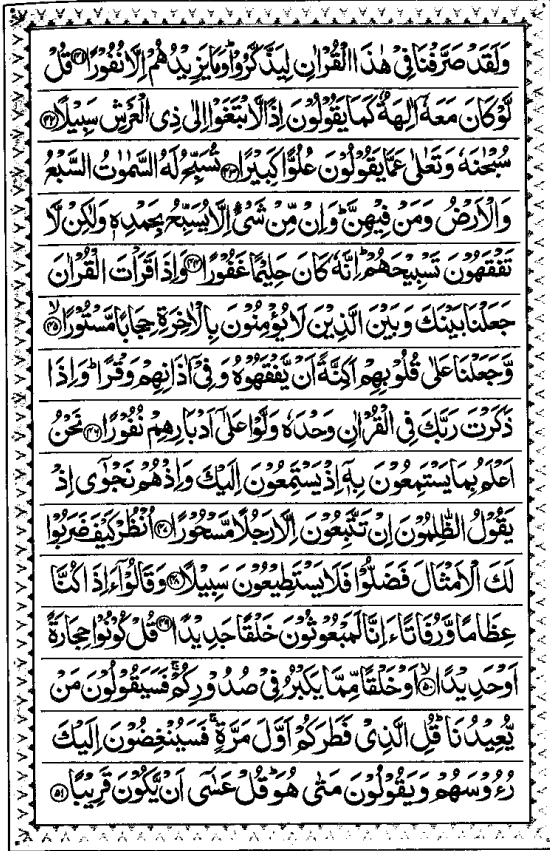 وَلَقَدْ صَرَّفْنَا فِیْ هٰذَا الْقُرْاٰنِ لِیَذَّكَّرُوْا ؕ وَمَا یَزِیْدُهُمْ اِلَّا نُفُوْرًا ﴿۴۱﴾ قُلْ
لَّوْ كَانَ مَعَهٗۤ اٰلِهَةٌ كَمَا یَقُوْلُوْنَ اِذًا لَّابْتَغَوْا اِلٰی ذِی الْعَرْشِ سَبِیْلًا ﴿۴۲﴾
سُبْحٰنَهٗ وَتَعٰلٰی عَمَّا یَقُوْلُوْنَ عُلُوًّا كَبِیْرًا ﴿۴۳﴾ تُسَبِّحُ لَهُ السَّمٰوٰتُ السَّبْعُ
وَالْاَرْضُ وَمَنْ فِیْهِنَّ ؕ وَاِنْ مِّنْ شَیْءٍ اِلَّا یُسَبِّحُ بِحَمْدِهٖ وَلٰكِنْ لَّا
تَفْقَهُوْنَ تَسْبِیْحَهُمْ ؕ اِنَّهٗ كَانَ حَلِیْمًا غَفُوْرًا ﴿۴۴﴾ وَاِذَا قَرَاْتَ الْقُرْاٰنَ
جَعَلْنَا بَیْنَكَ وَبَیْنَ الَّذِیْنَ لَا یُؤْمِنُوْنَ بِالْاٰخِرَةِ حِجَابًا مَّسْتُوْرًا ﴿۴۵﴾ۙ
وَّجَعَلْنَا عَلٰی قُلُوْبِهِمْ اَكِنَّةً اَنْ یَّفْقَهُوْهُ وَفِیْۤ اٰذَانِهِمْ وَقْرًا ؕ وَاِذَا
ذَكَرْتَ رَبَّكَ فِی الْقُرْاٰنِ وَحْدَهٗ وَلَّوْا عَلٰۤی اَدْبَارِهِمْ نُفُوْرًا ﴿۴۶﴾ نَحْنُ
اَعْلَمُ بِمَا یَسْتَمِعُوْنَ بِهٖۤ اِذْ یَسْتَمِعُوْنَ اِلَیْكَ وَاِذْ هُمْ نَجْوٰۤی اِذْ
یَقُوْلُ الظّٰلِمُوْنَ اِنْ تَتَّبِعُوْنَ اِلَّا رَجُلًا مَّسْحُوْرًا ﴿۴۷﴾ اُنْظُرْ كَیْفَ ضَرَبُوْا
لَكَ الْاَمْثَالَ فَضَلُّوْا فَلَا یَسْتَطِیْعُوْنَ سَبِیْلًا ﴿۴۸﴾ وَقَالُوْۤا ءَاِذَا كُنَّا
عِظَامًا وَّرُفَاتًا ءَاِنَّا لَمَبْعُوْثُوْنَ خَلْقًا جَدِیْدًا ﴿۴۹﴾ قُلْ كُوْنُوْا حِجَارَةً
اَوْ حَدِیْدًا ﴿۵۰﴾ۙ اَوْ خَلْقًا مِّمَّا یَكْبُرُ فِیْ صُدُوْرِكُمْ ۚ فَسَیَقُوْلُوْنَ مَنْ
یُّعِیْدُنَا ؕ قُلِ الَّذِیْ فَطَرَكُمْ اَوَّلَ مَرَّةٍ ۚ فَسَیُنْغِضُوْنَ اِلَیْكَ
رُءُوْسَهُمْ وَیَقُوْلُوْنَ مَتٰی هُوَ ؕ قُلْ عَسٰۤی اَنْ یَّكُوْنَ قَرِیْبًا ﴿۵۱﴾